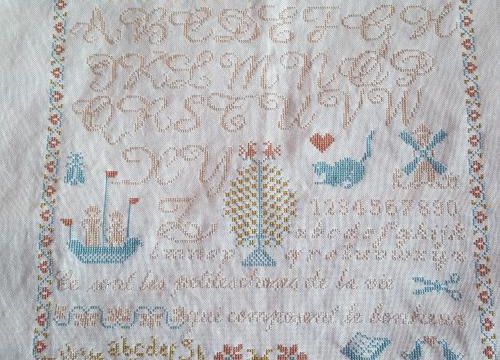 A B C D E F G H
I J K L M N O P
Q R S T U V W
X Y
Z
1234567890
abcdefghijk
lmnop qrstuvwxyz
Ce sont les petites choses de la vie
qui composent le bonheur
abcdefgh